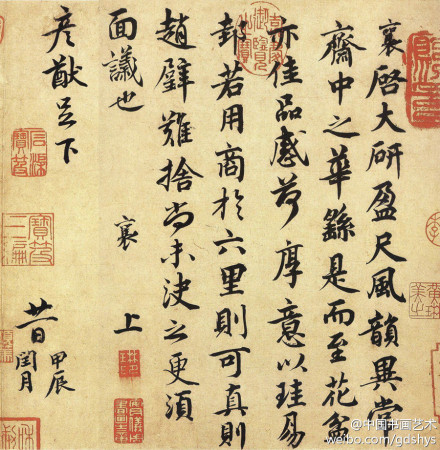 襄啓大研盈尺風韻異常
齋中之華繇是而至花盆
亦佳品感荷厚意以珪易
邽若用商於六里則可真則
趙璧難捨尚未決之更須
面議也
襄上
彦猷足下
廿一日
甲辰
閏月
@中国书画艺术
weibo.com/gdshys